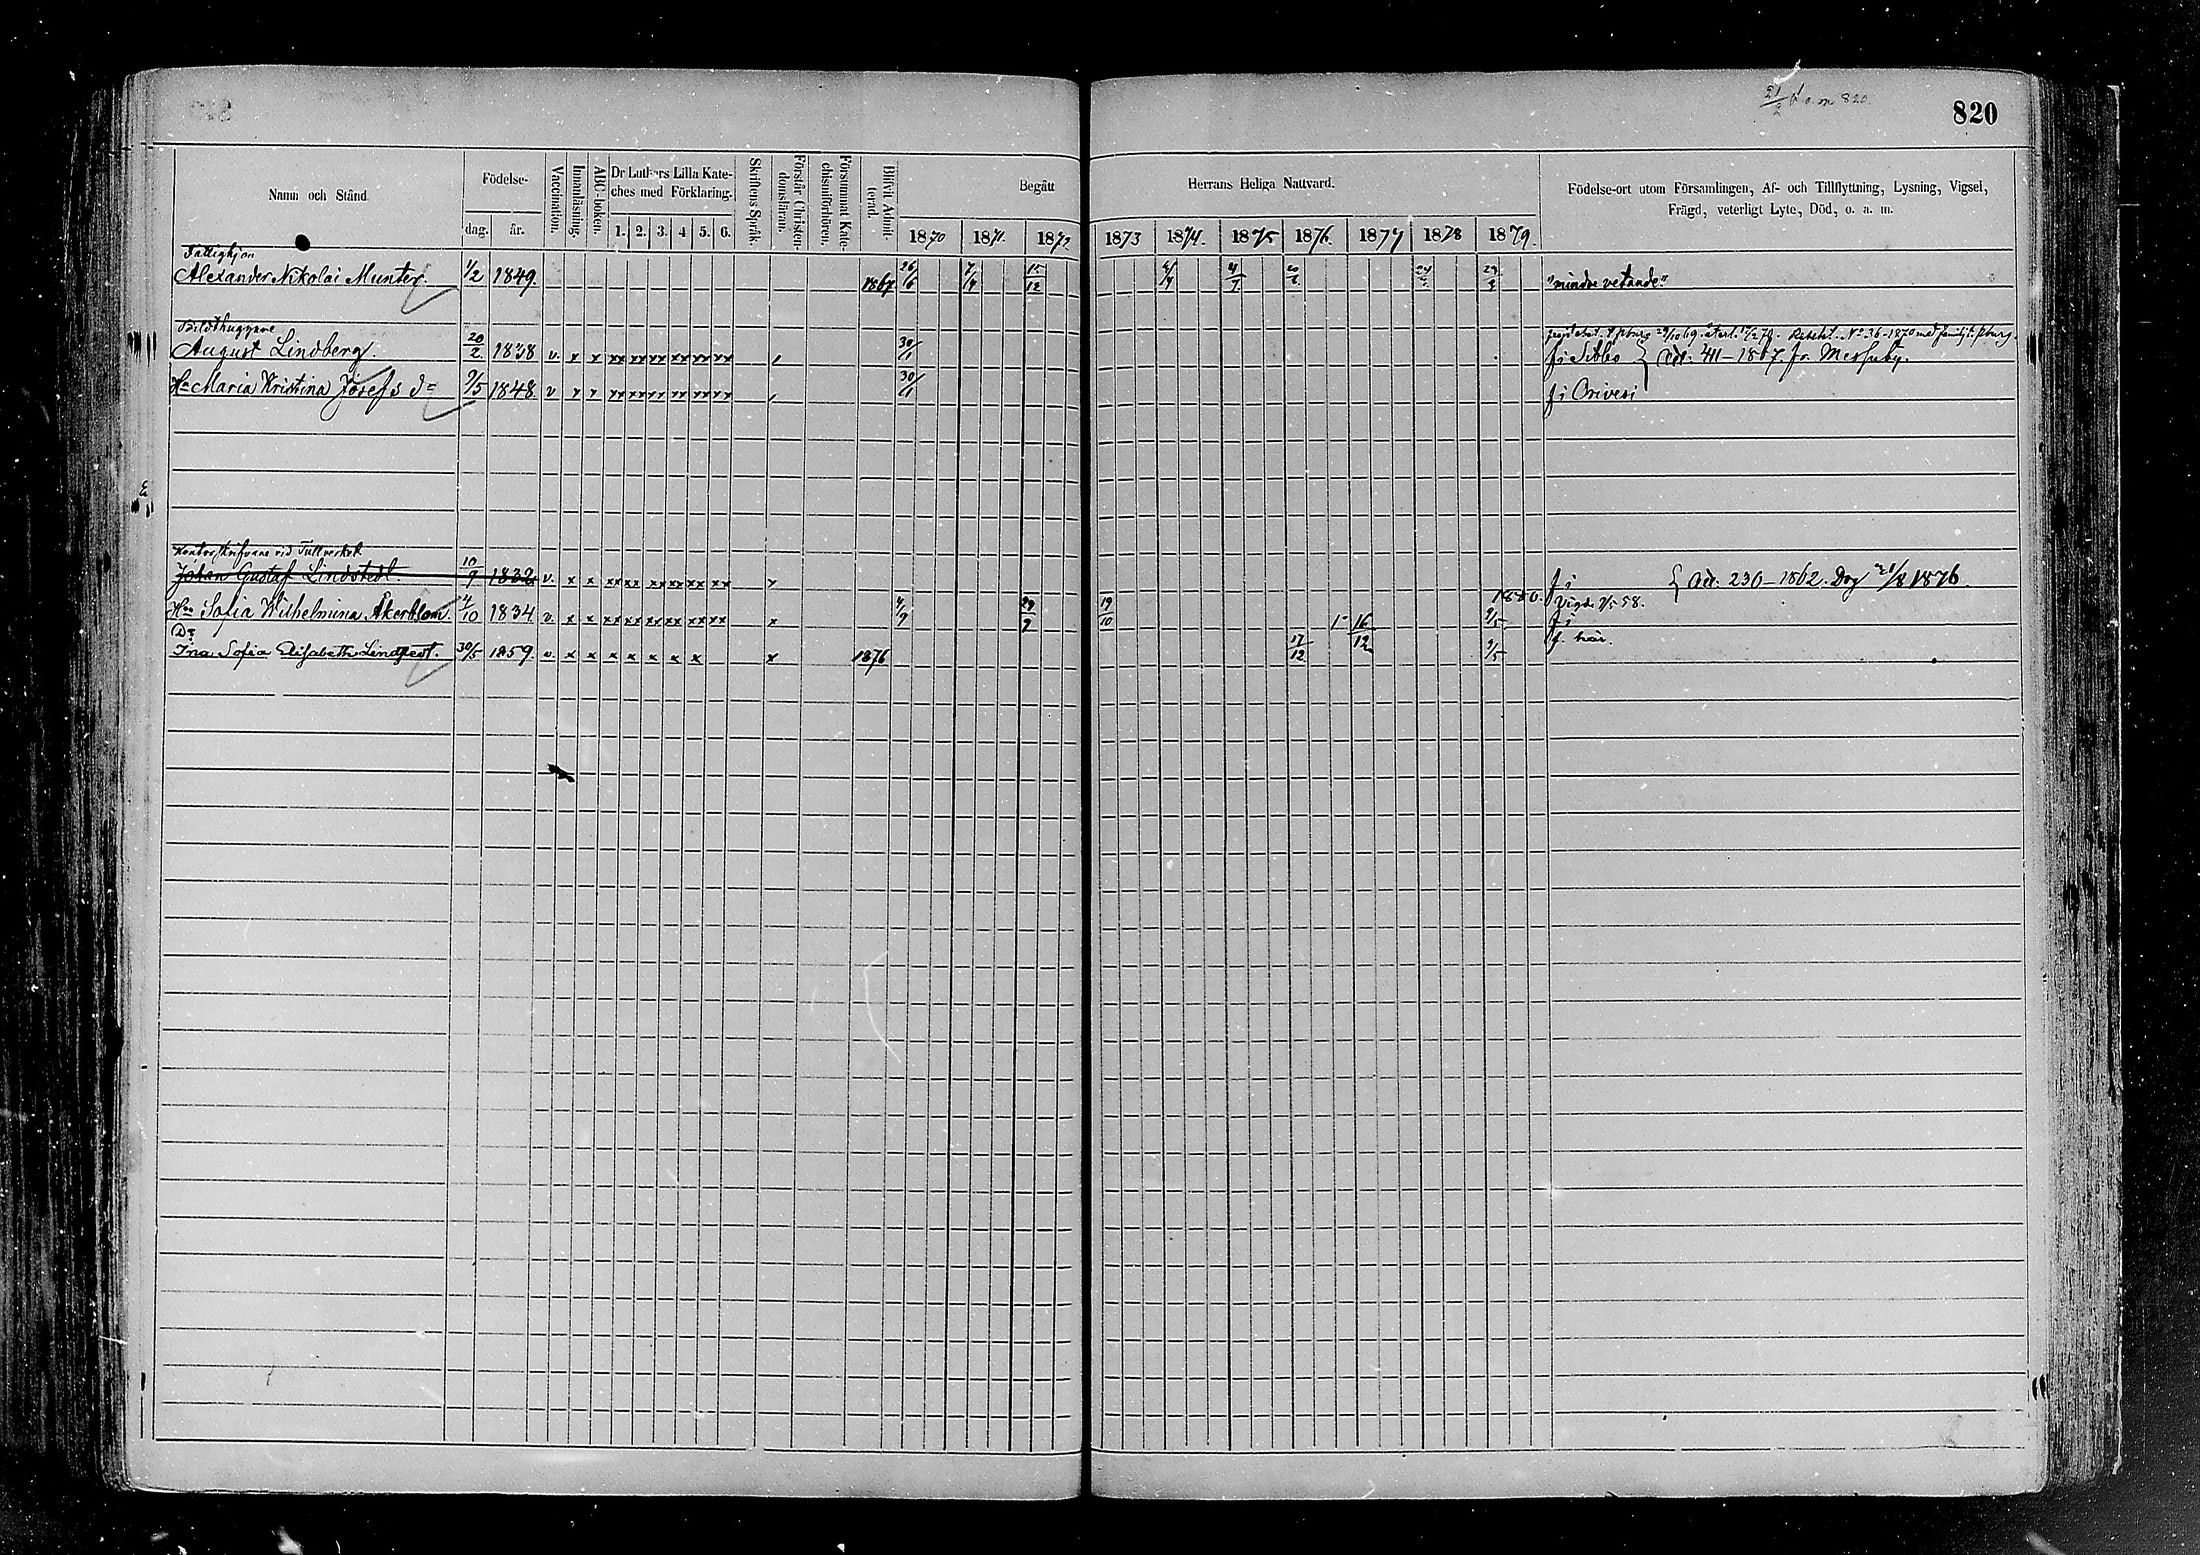 820
Namn och Stånd.
Födelse-
dag. år.
Vaccination.
Innanläsning.
ABC-boken.
Dr Luthers Lilla Kate-
ches med Förklaring.
1. 2. 3. 4 5. 6.
Skriftens Språk.
Förstår Christen-
domsläran.
Försummat Kate-
chismiförhören.
Blifvit Admit-
terad.
Begått
Herrans Heliga Nattvard.
1870 1871. 1872 1873 1874. 1875 1876. 1877 1878 1879.
Födelse-ort utom Församlingen, Af- och Tillflyttning, Lysning, Vigsel,
Frägd, veterligt Lyte, Död, o. a. m.
Fattighjon
Alexander Nikolai Munter. 1/2 1849. 1867 26/6 15/12 "mindre vetande."
Bildthuggare
August Lindberg. 20/2 1838 v. x x xx xx xx xx xx xx 30/1 f. i Sibbo
Hu Maria Kristina Josefs dr 9/5 1848. v x x xx xx xx xx xx xx 30/1 f i Orivesi
Kontorsskrifvare vid Tullverket
Johan Gustaf Lindstedt. 10/9 1832 v. x x xx xx xx xx xx xx x f i Att. 230-1862. Dog 21/8 1876.
1880. Vigde 58.
Hu Sofia Wilhelmina Åkerblom. 4/10 1834. v. x x xx xx xx xx xx xx x 29/9 19/10 16/12 9/5 f i
Dr
Ina Sofia Elisabeth Lindstedt. 30/5 1859. v. x x x x x x x x 1876 17/12 9/5 f. här.